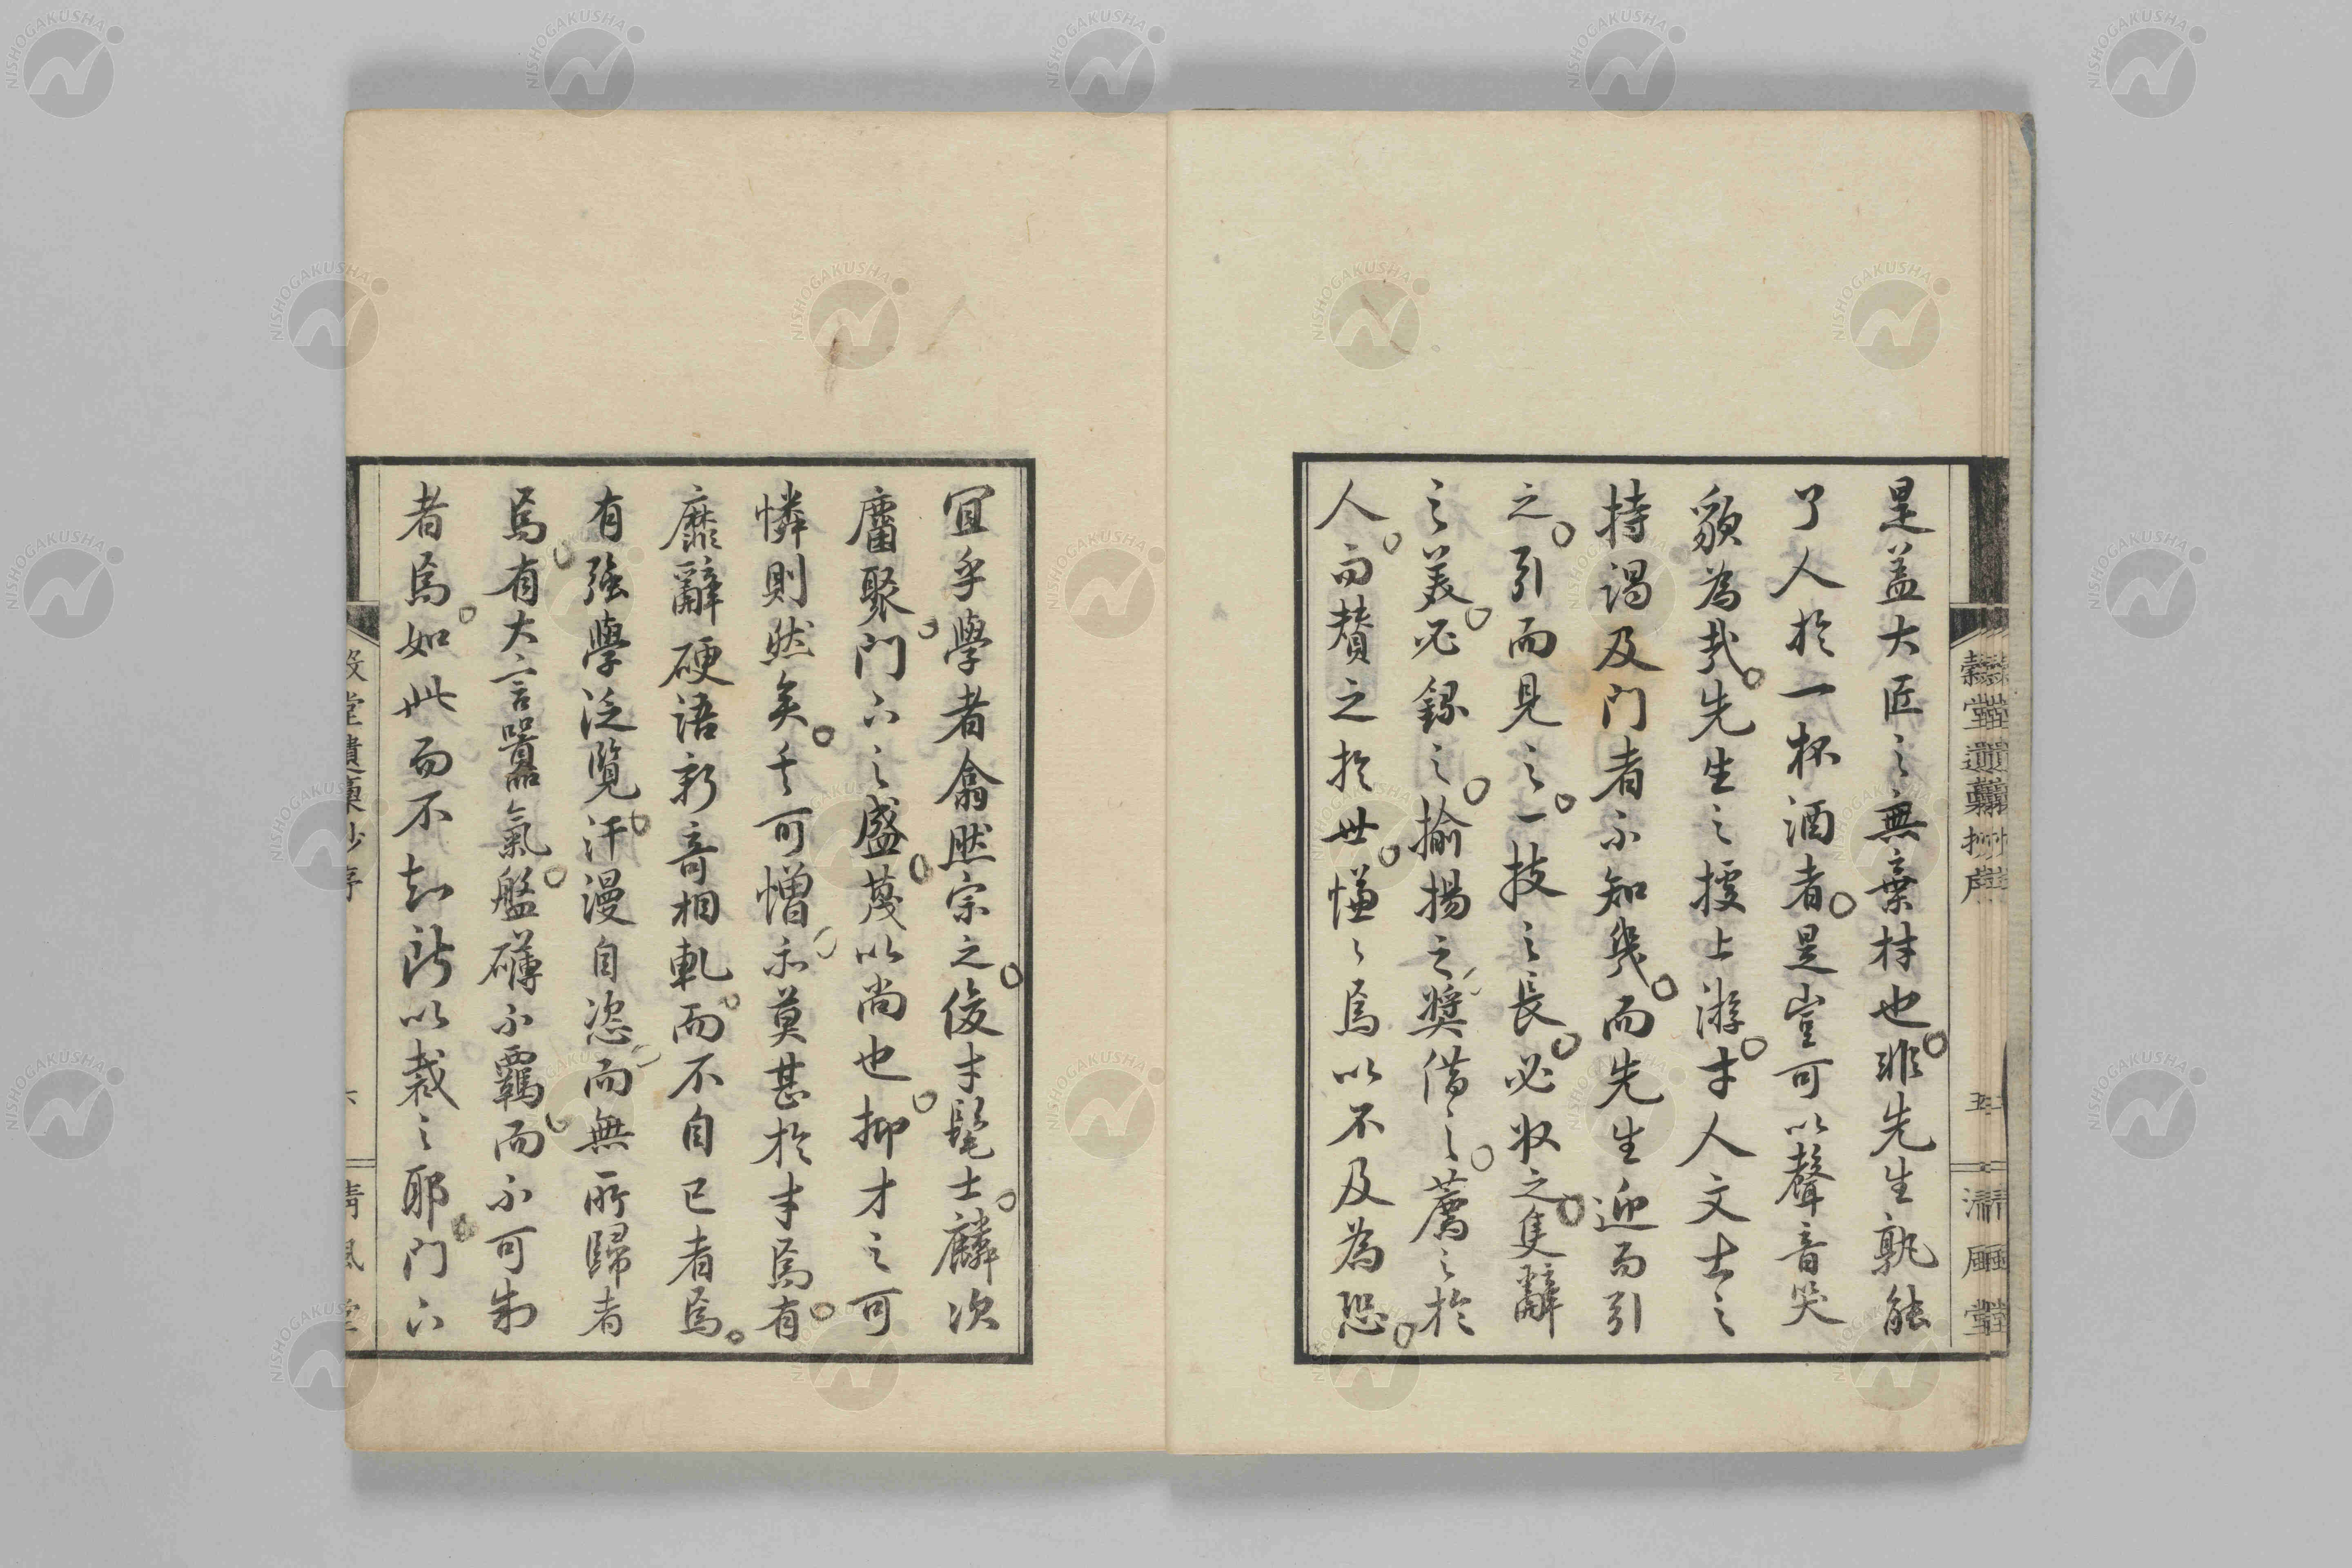 是蓋大匠之無棄材也。非先生孰能
了人於一杯酒者。是豈可以聲音笑
貌為哉。先生之擅上游。才人文士之
持謁及門者不知幾。而先生迎而引
之。引而見之。一技之長。必收之。隻辭
之美。必錄之。揄揚之。獎借之。薦之於
人。而贊之於世。慊々焉以不及為恐。
穀堂遺稾抄序
五
清風堂
宜乎學者翕然宗之。俊才髦士。麟次
麕聚。門下之盛。蔑以尚也。抑才之可
憐則然矣。其可憎亦莫甚於才焉。有
靡辭硬語新奇相軋。而不自已者焉。
有強學泛覽。汗漫自恣。而無所歸者
焉。有大言嚣氣。盤礴不羈。而不可制
者焉。如此而不知所以裁之耶。門下
穀堂遺稾抄序
六
清風堂
NISHOGAKUSHA